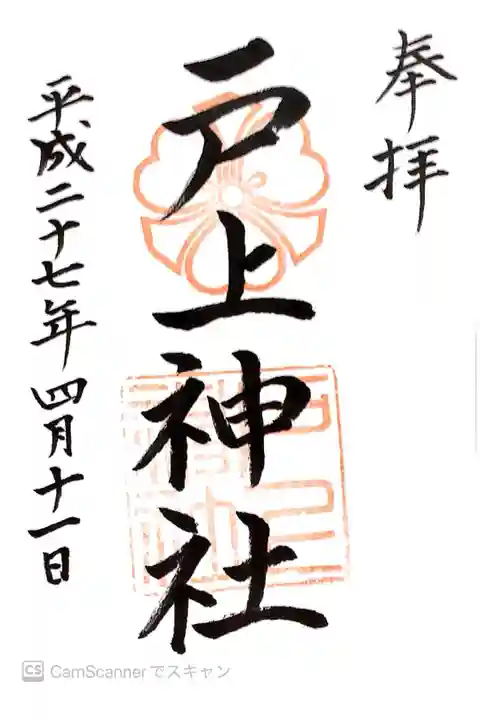 奉拝
戸上神社
平成二十七年四月十一日
CS CamScannerでスキャン